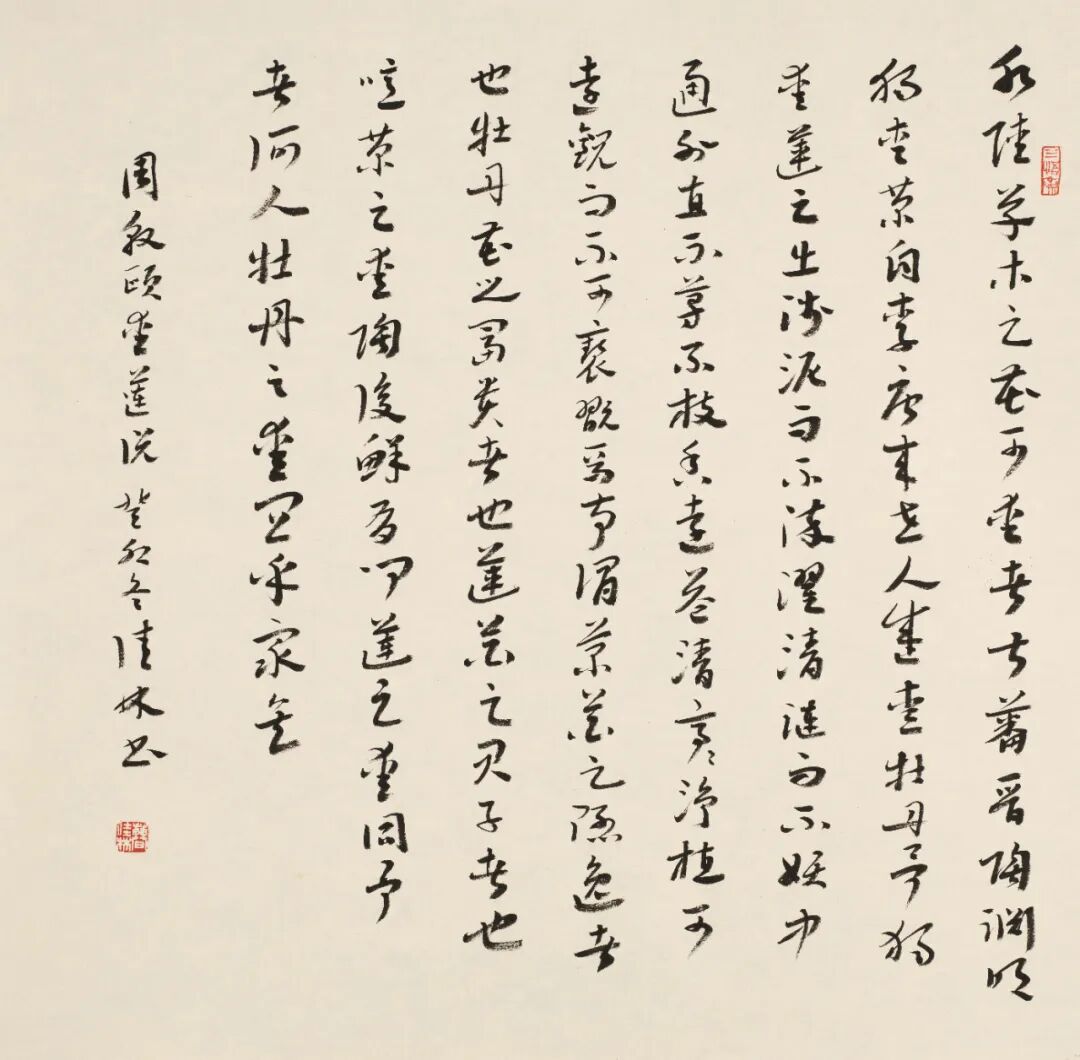 水陸草木之花可愛者甚蕃晋陶淵明
獨愛菊自李唐來世人盛愛牡丹予獨
愛蓮之出淤泥而不染濯清漣而不妖中
通外直不蔓不枝香遠益清亭〻淨植可
遠觀而不可褻翫焉予謂菊花之隱逸者
也牡丹花之富貴者也蓮花之君子者也
噫菊之愛陶後鮮有聞蓮之愛同予
者何人牡丹之愛宜乎衆矣
周敦頤愛蓮説 癸卯冬佳林书